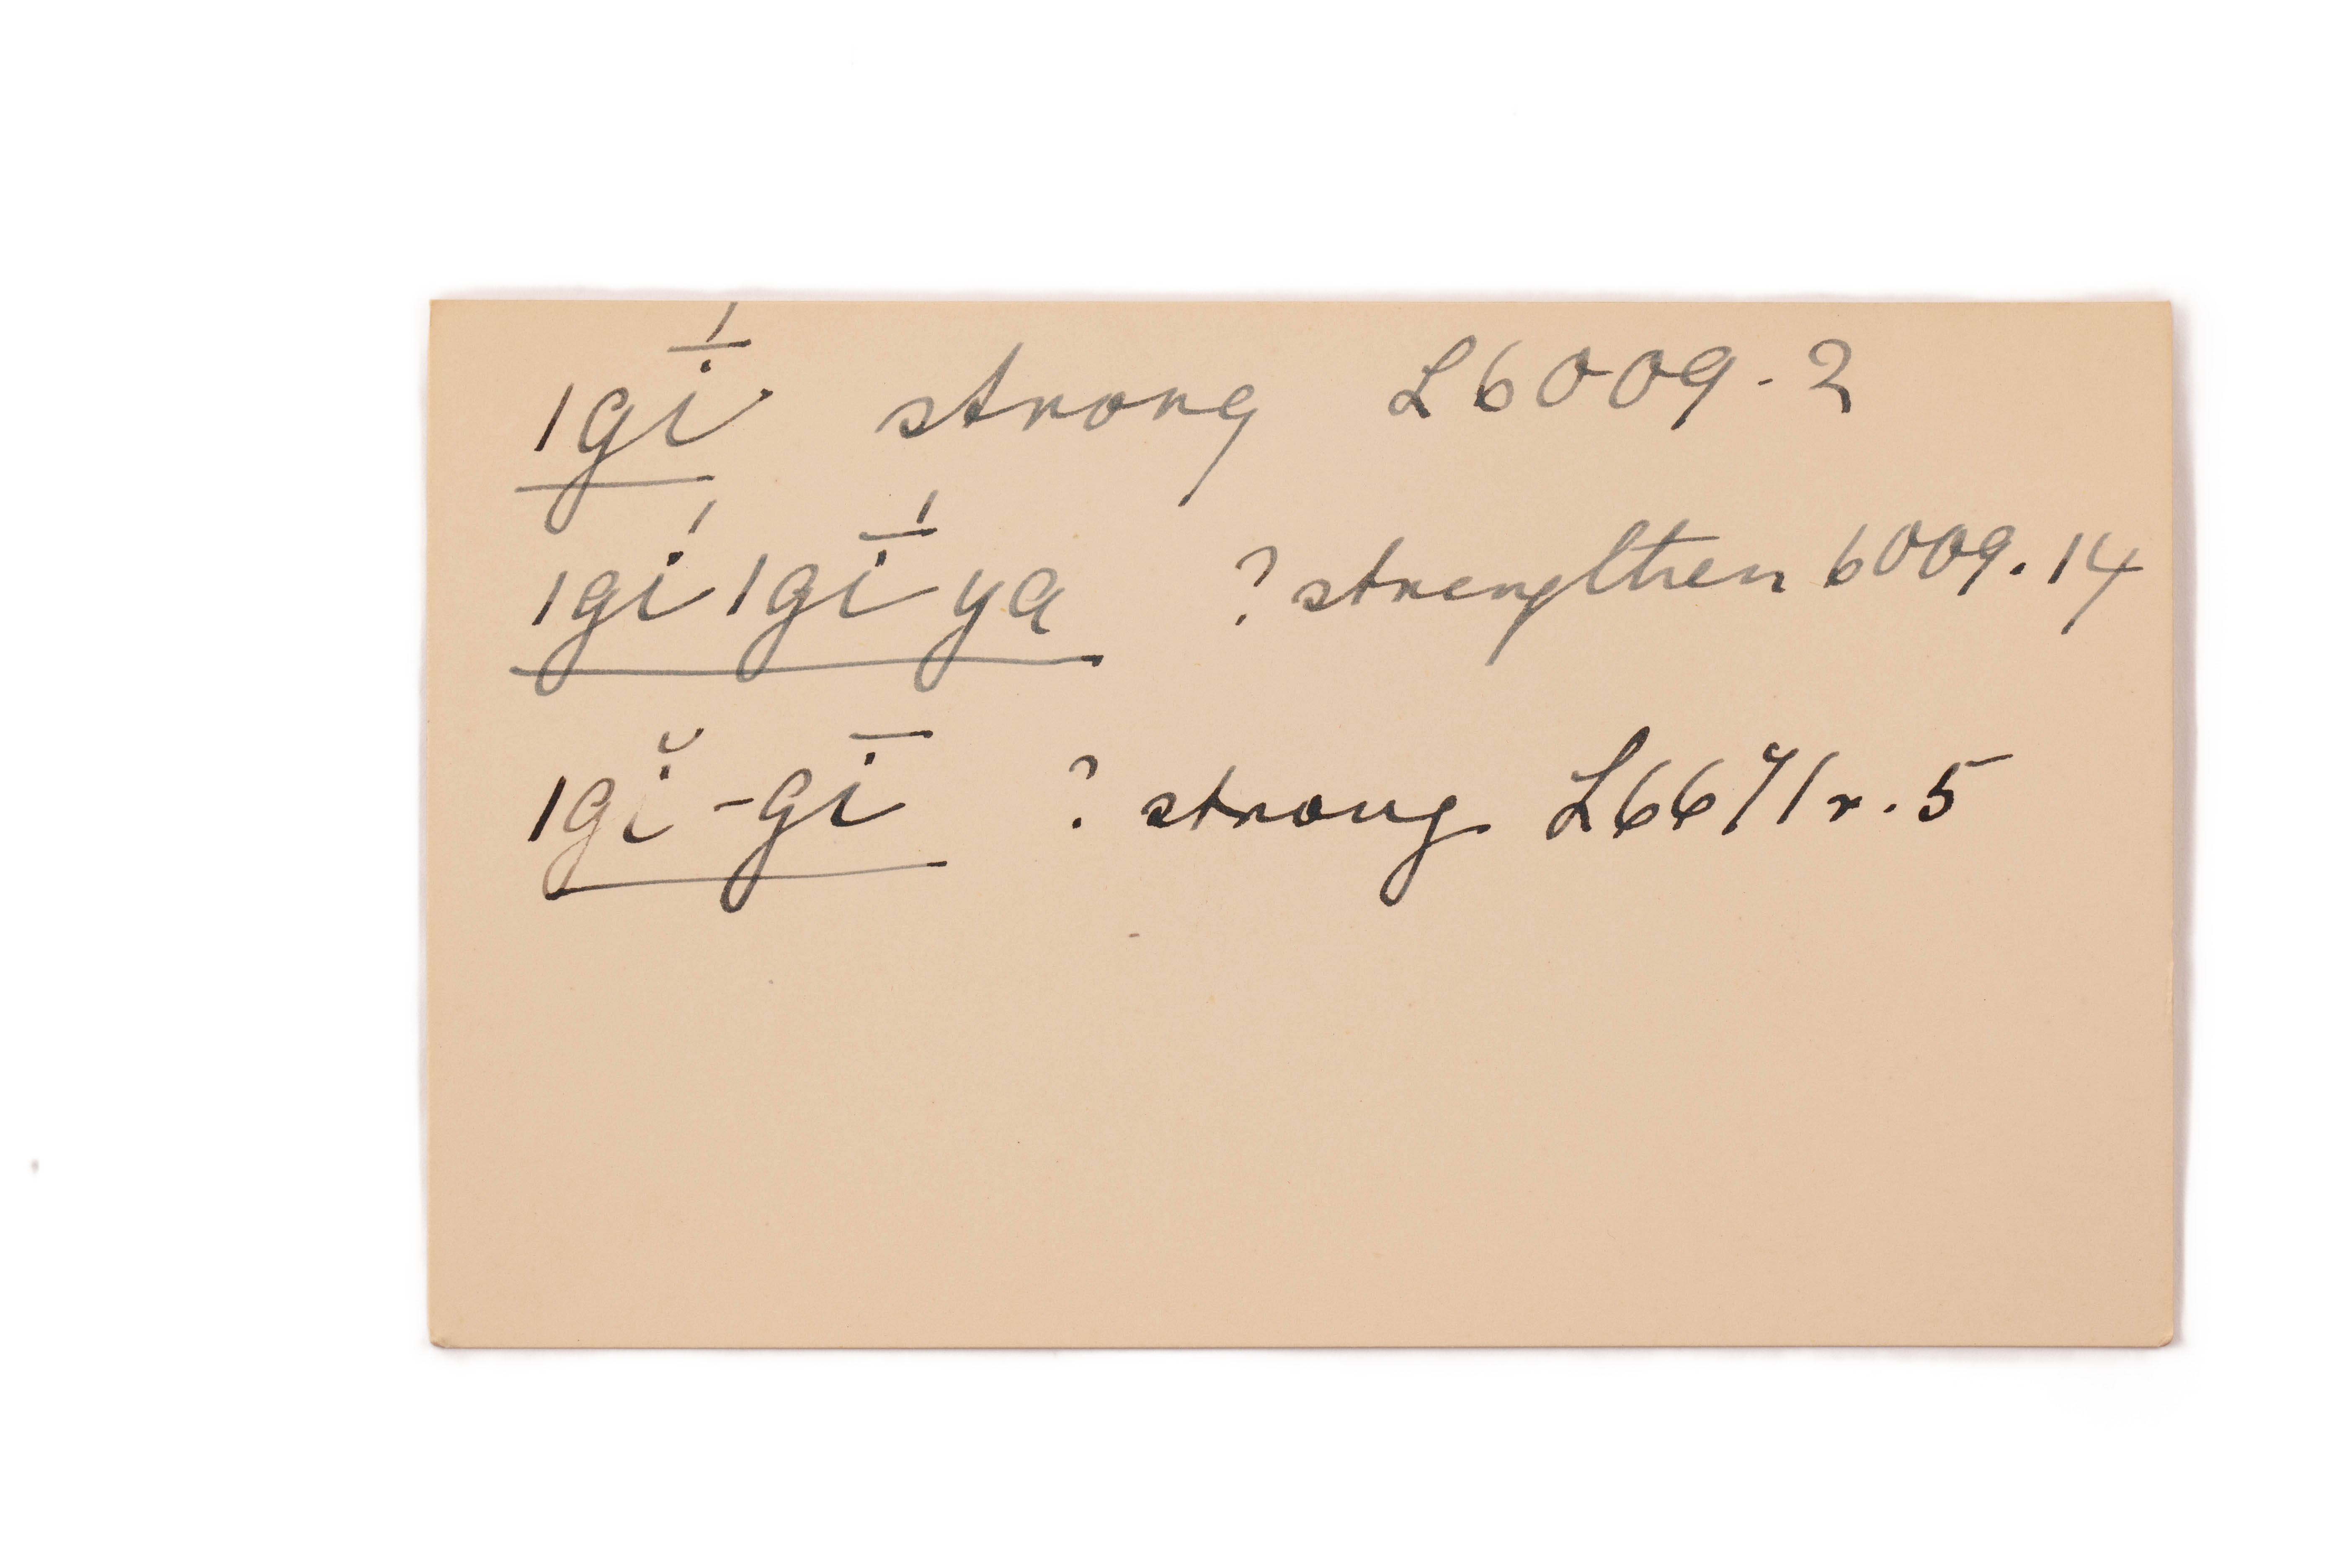 |gī́ strong L6009-2
|gí|gī́ya ? strengthen 6009.14
|gĭ-gī ? strong L6671r.5